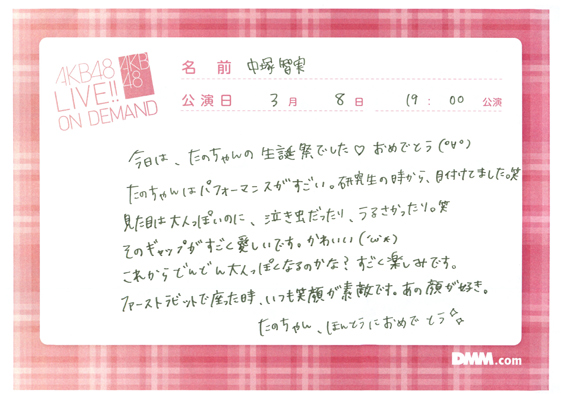 AKB48
LIVE!!
ON DEMAND
AKB
48
名 前 中塚智実
公演日 3月 8日 19:00 公演
今日は、たのちゃんの生誕祭でした♡おめでとう(°∀°)
たのちゃんはパフォーマンスがすごい。研究生の時から、目付けてました。笑
見た目は大人っぽいのに、泣き虫だったり、うるさかったり。笑
そのギャップがすごく愛しいです。かわいい(´ω`*)
これからでんでん大人っぽくなるのかな?すごく楽しみです。
ファーストラビットで座った時、いつも笑顔が素敵です。あの顔が好き。
たのちゃん、ほんとうにおめでとう☆☆
DMM.com